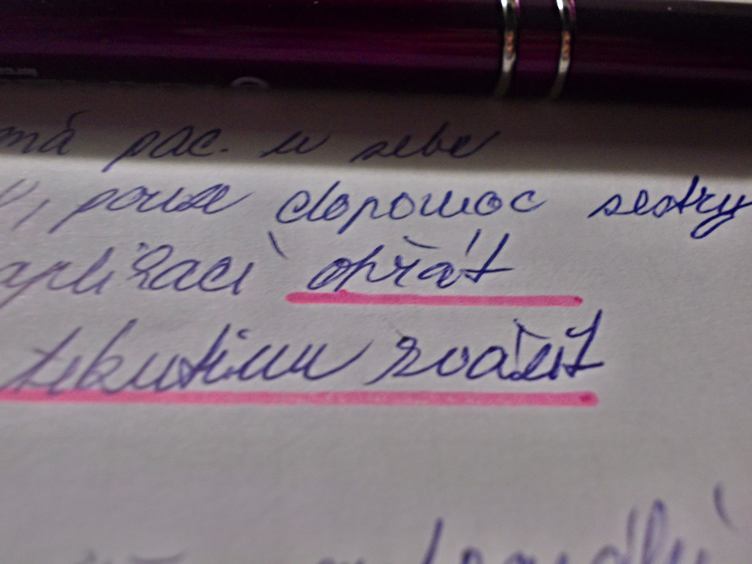 má pac. u sebe
, pouze dopomoc sestry
aplikaci ohřát
tekutinu zvážit